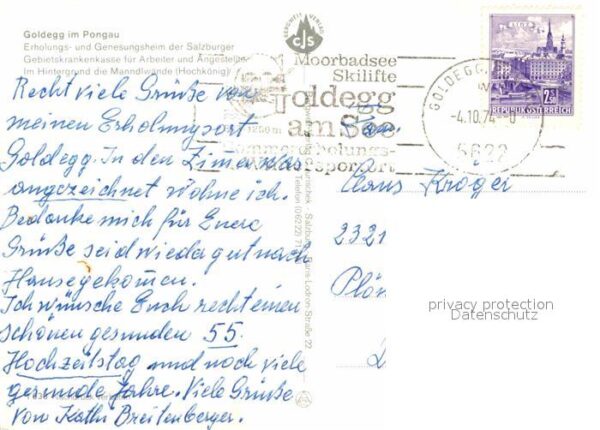 Goldegg im Pongau
Erholungs- und Genesungsheim der Salzburger
Gebietskrankenkasse für Arbeiter und Angestellte
Im Hintergrund die Manndlwände (Hochkönig)
BERGWELT VERLAG
cJs
Moorbadsee
Skilifte
Goldegg
am See
1250 m
Sommererholungs-
Wintersportort
GOLDEGG
-4.10.74-
5622
LINZ
2.50
REPUBLIK ÖSTERREICH
Recht viele Grüße von
meinen Erholungsort
Goldegg. In den Zimer das
angezeichnet wohne ich.
Bedanke mich für Euere
Grüße seid wieder gut nach
Hause gekomen.
Ich wünsche Euch recht einen
schönen gesunden 55.
Hochzeitstag und noch viele
gesunde Jahre. Viele Grüße
von Kathi Breitenberger.
Claus Kröger
2321
Plön
privacy protection
Datenschutz